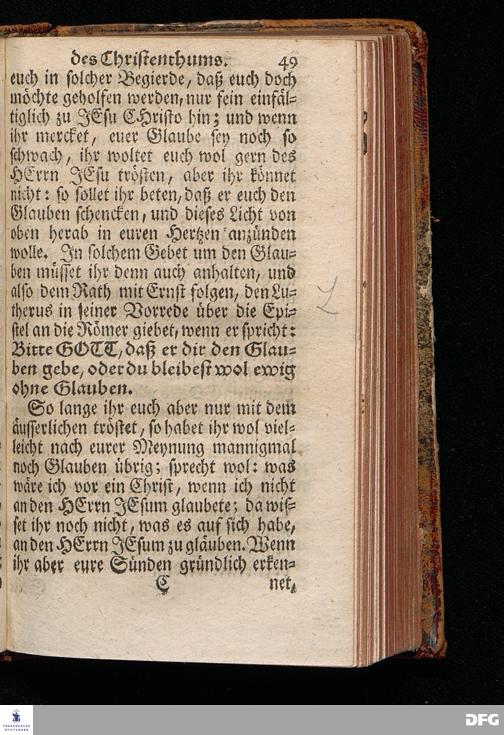 des Christenthums. 49
euch in solcher Begierde, daß euch doch
möchte geholfen werden, nur fein einfäl-
tiglich zu JEsu CHristo hin; und wenn
ihr mercket, euer Glaube sey noch so
schwach, ihr woltet euch wol gern des
HErrn JEsu trösten, aber ihr könnet
nicht: so sollet ihr beten, daß er euch den
Glauben schencken, und dieses Licht von
oben herab in euren Hertzen anzünden
wolle. Jn solchem Gebet um den Glau-
ben müsset ihr denn auch anhalten, und
also dem Rath mit Ernst folgen, den Lu-
therus in seiner Vorrede über die Epi-
stel an die Römer giebet, wenn er spricht:
Bitte GOTT, daß er dir den Glau-
ben gebe, oder du bleibest wol ewig
ohne Glauben.
So lange ihr euch aber nur mit dem
äusserlichen tröstet, so habet ihr wol viel-
leicht nach eurer Meynung mannigmal
noch Glauben übrig; sprecht wol: was
wäre ich vor ein Christ, wenn ich nicht
an den HErrn JEsum glaubete; da wis-
set ihr noch nicht, was es auf sich habe,
an den HErrn JEsum zu gläuben. Wenn
ihr aber eure Sünden gründlich erken-
C net,
FRANCKESCHE
STIFTUNGEN
DFG